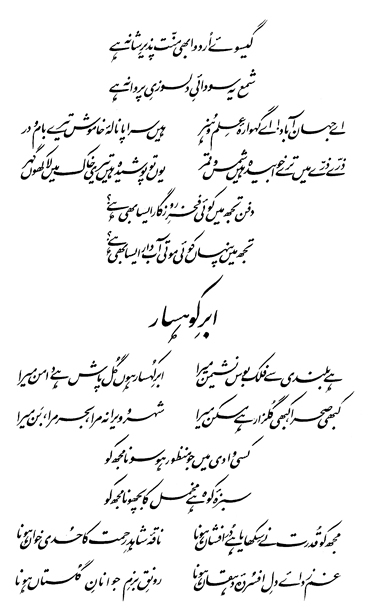 گیسوئے اُردو ابھی منّت پذیرِ شانہ ہے
شمع یہ سودائیِ دلسوزیِ پروانہ ہے
اے جہان آباد! اے گہوارۂ علم و ہنر ہیں سراپا نالۂ خاموش تیرے بام و در
ذرّے ذرّے میں ترے خوابیدہ ہیں شمس و قمر یوں تو پوشیدہ ہیں تیری خاک میں لاکھوں گہر
دفن تجھ میں کوئی فخرِ روزگار ایسا بھی ہے؟
تجھ میں پنہاں کوئی موتی آبدار ایسا بھی ہے؟
ابرِ کوہسار
ہے بلندی سے فلک بوس نشیمن میرا ابرِ کُہسار ہوں گُل پاش ہے دامن میرا
کبھی صحرا کبھی گُلزار ہے مسکن میرا شہر و ویرانہ مرا، بحر مرا، بَن میرا
کسی وادی میں جو منظور ہو سونا مجھ کو
سبزۂ کوہ ہے مخمل کا بچھونا مجھ کو
مجھ کو قُدرت نے سِکھایا ہے دُرافشاں ہونا ناقۂ شاہدِ رحمت کا حُدی خواں ہونا
غم زدائے دلِ افسُردۂ دہقاں ہونا رونقِ بزمِ جوانانِ گُلستاں ہونا